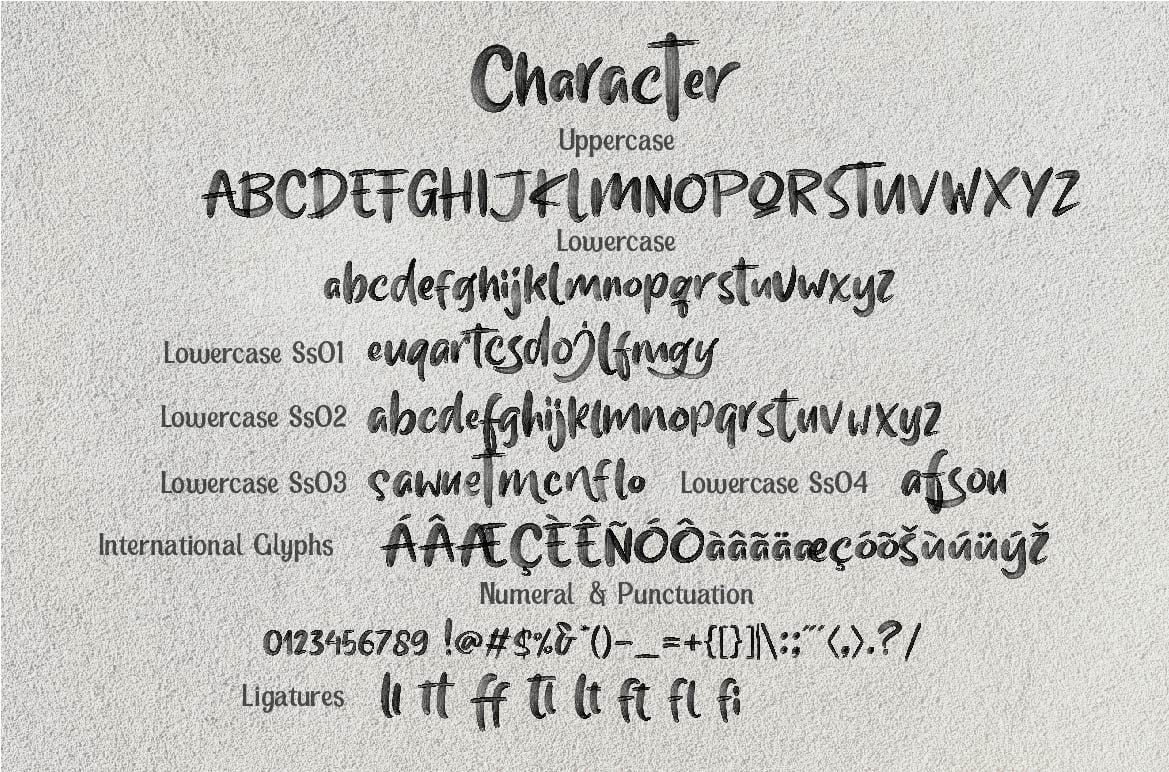 Character
Uppercase
ABCDEFGHIJKLMNOPQRSTUVWXYZ
Lowercase
abcdefghijklmnopqrstuvwxyz
Lowercase Ss01 euqartcsdojlfmgy
Lowercase Ss02 abcdefghijklmnopqrstuvwxyz
Lowercase Ss03 sawnetmcnflo Lowercase Ss04 afsou
International Glyphs ÁÂÆÇÈÊÑÓÔàâãäæçóõšùúüýž
Numeral & Punctuation
0123456789 !@#$%&*()-_=+{[}]|\:;"'<,>.?/
Ligatures ll tt ff ti lt ft fl fi